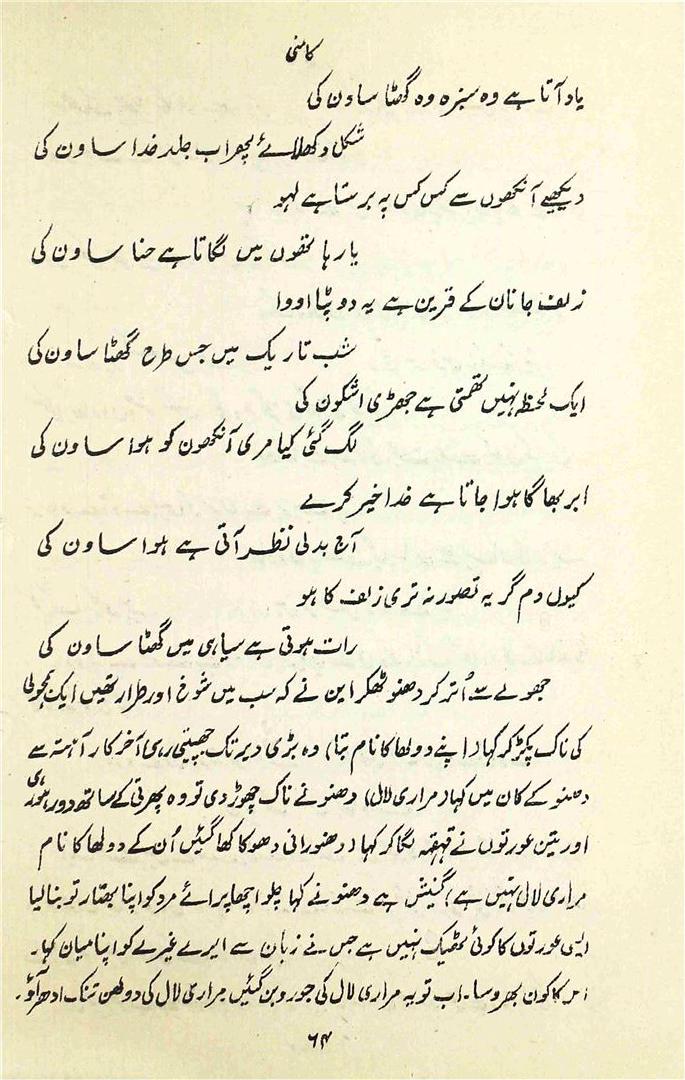 کامنی
یاد آتا ہے وہ سبزہ وہ گھٹا ساون کی
شکل دکھلائے پھر اب جلد خدا ساون کی
دیکھیے آنکھوں سے کس کس پہ برستا ہے لہو
یار ہاتھوں میں لگاتا ہے حنا ساون کی
زلف جانان کے قرین ہے یہ دوپٹا اووا
شب تاریک میں جس طرح گھٹا ساون کی
ایک لحظہ نہیں تھمتی ہے جھڑی اشکون کی
لگ گئی کیا مری آنکھون کو ہوا ساون کی
ابر بھاگا ہوا جاتا ہے خدا خیر کرے
آج بدلی نظر آتی ہے ہوا ساون کی
کیوں دم گریہ تصور نہ تری زلف کا ہو
رات ہوتی ہے سیاہی میں گھٹا ساون کی
جھولے سے اُتر کر دھنو ٹھکراین نے کہ سب میں شوخ اور طرار تھیں ایک ہمجولی
کی ناک پکڑ کر کہا (اپنے دولھا کا نام بتا) وہ بڑی دیر تک جھینپتی رہی آخر کار آہستہ سے
دھنو کے کان میں کہا (مراری لال) دھنو نے ناک چھوڑ دی تو وہ پھرتی کے ساتھ دور ہو رہی
اور تین عورتوں نے قہقہہ لگا کر کہا (دھنو رانی دھوکا کھا گئیں اُن کے دولھا کا نام
مراری لال نہیں ہے) گنیش ہے دھنو نے کہا چلو اچھا پرائے مرد کو اپنا بھتار تو بنا لیا
ایسی عورتوں کا کوئی ٹھیک نہیں ہے جس نے زبان سے ایرے غیرے کو اپنا میان کہا۔
اس کا کون بھروسا۔ اب تو یہ مراری لال کی جورو بن گئیں مراری لال کی دولھن تنک ادھر آؤ۔
۶۴